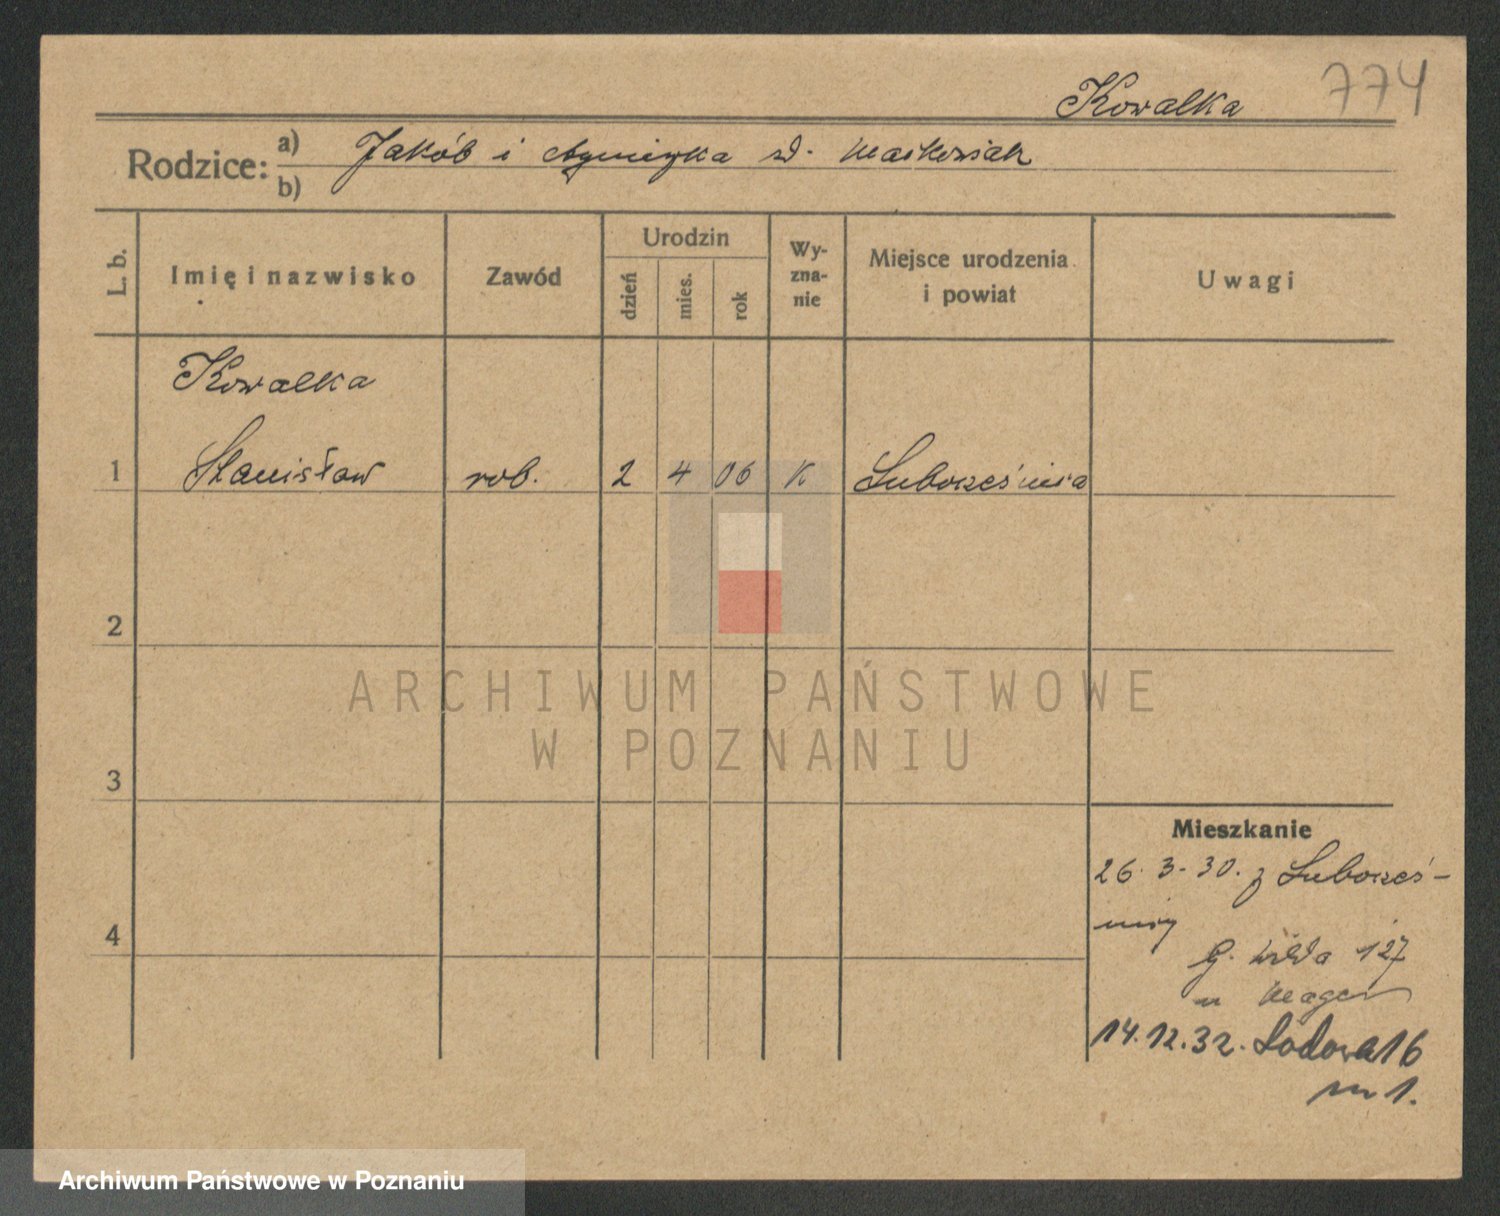 Kowalka 774
Rodzice: a) Jakób i Agnieszka zd. Maćkowiak
b)
L. b.
Imię i nazwisko
Zawód
Urodzin
dzień
mies.
rok
Wy-
zna-
nie
Miejsce urodzenia
i powiat
Uwagi
Kowalka
1 Stanisław rob. 2 4 06 K Luborześnica
2
3
4
Mieszkanie
26. 3. 30. z Luborześ-
nicy
G. Wilda 127
u
14. 12. 32. Lodowa 16
m 1.
ARCHIWUM PAŃSTWOWE
W POZNANIU
Archiwum Państwowe w Poznaniu